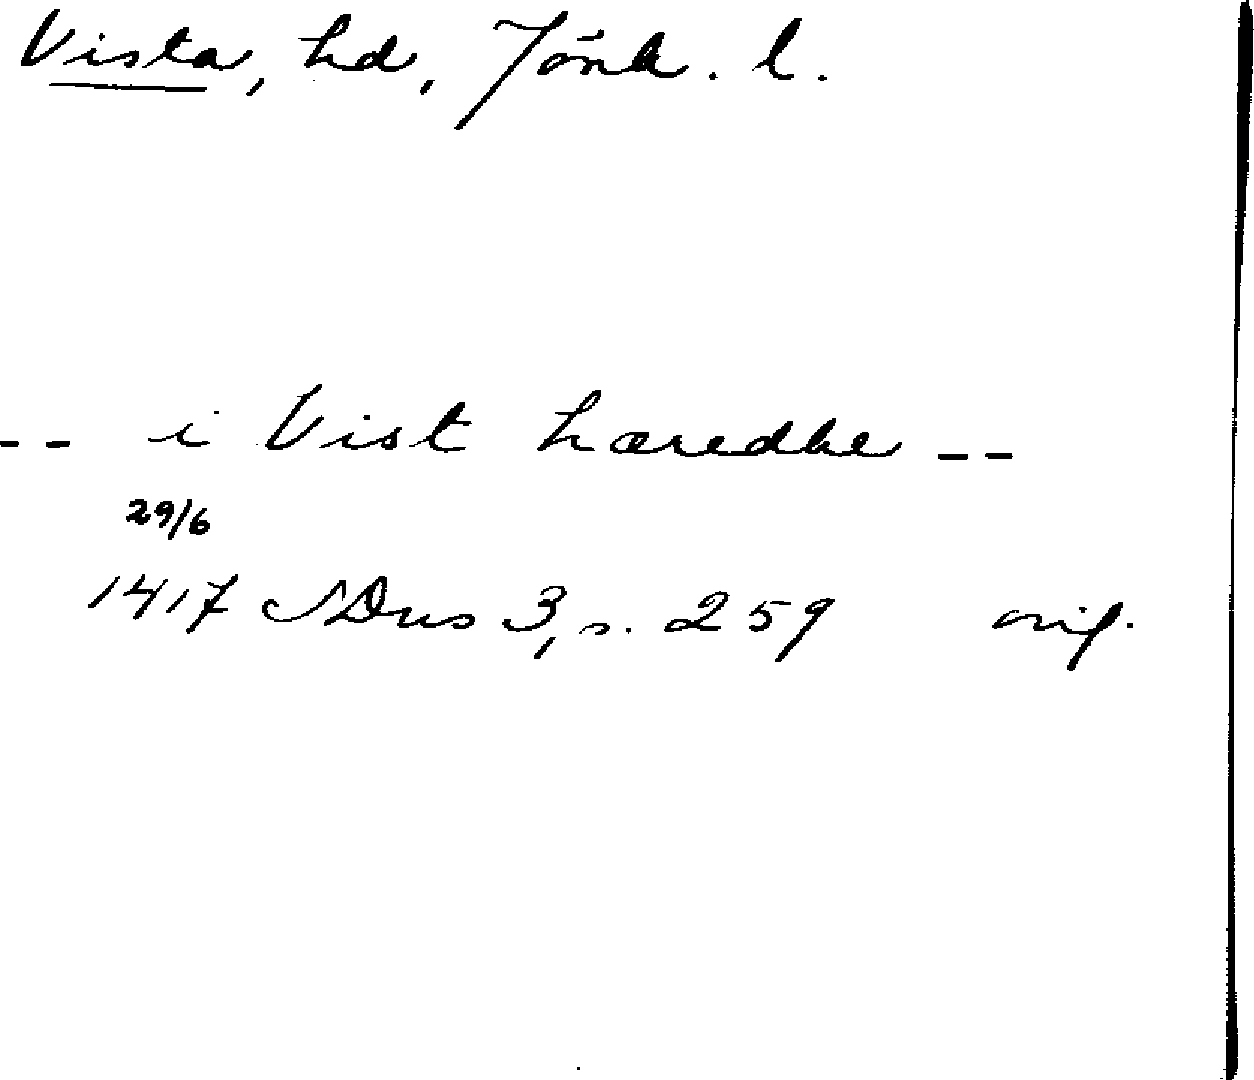 Vista, hd, Jönk. l.
-- i Vist hæredhe --
29/6
1417 SDns 3, s. 259 orig.